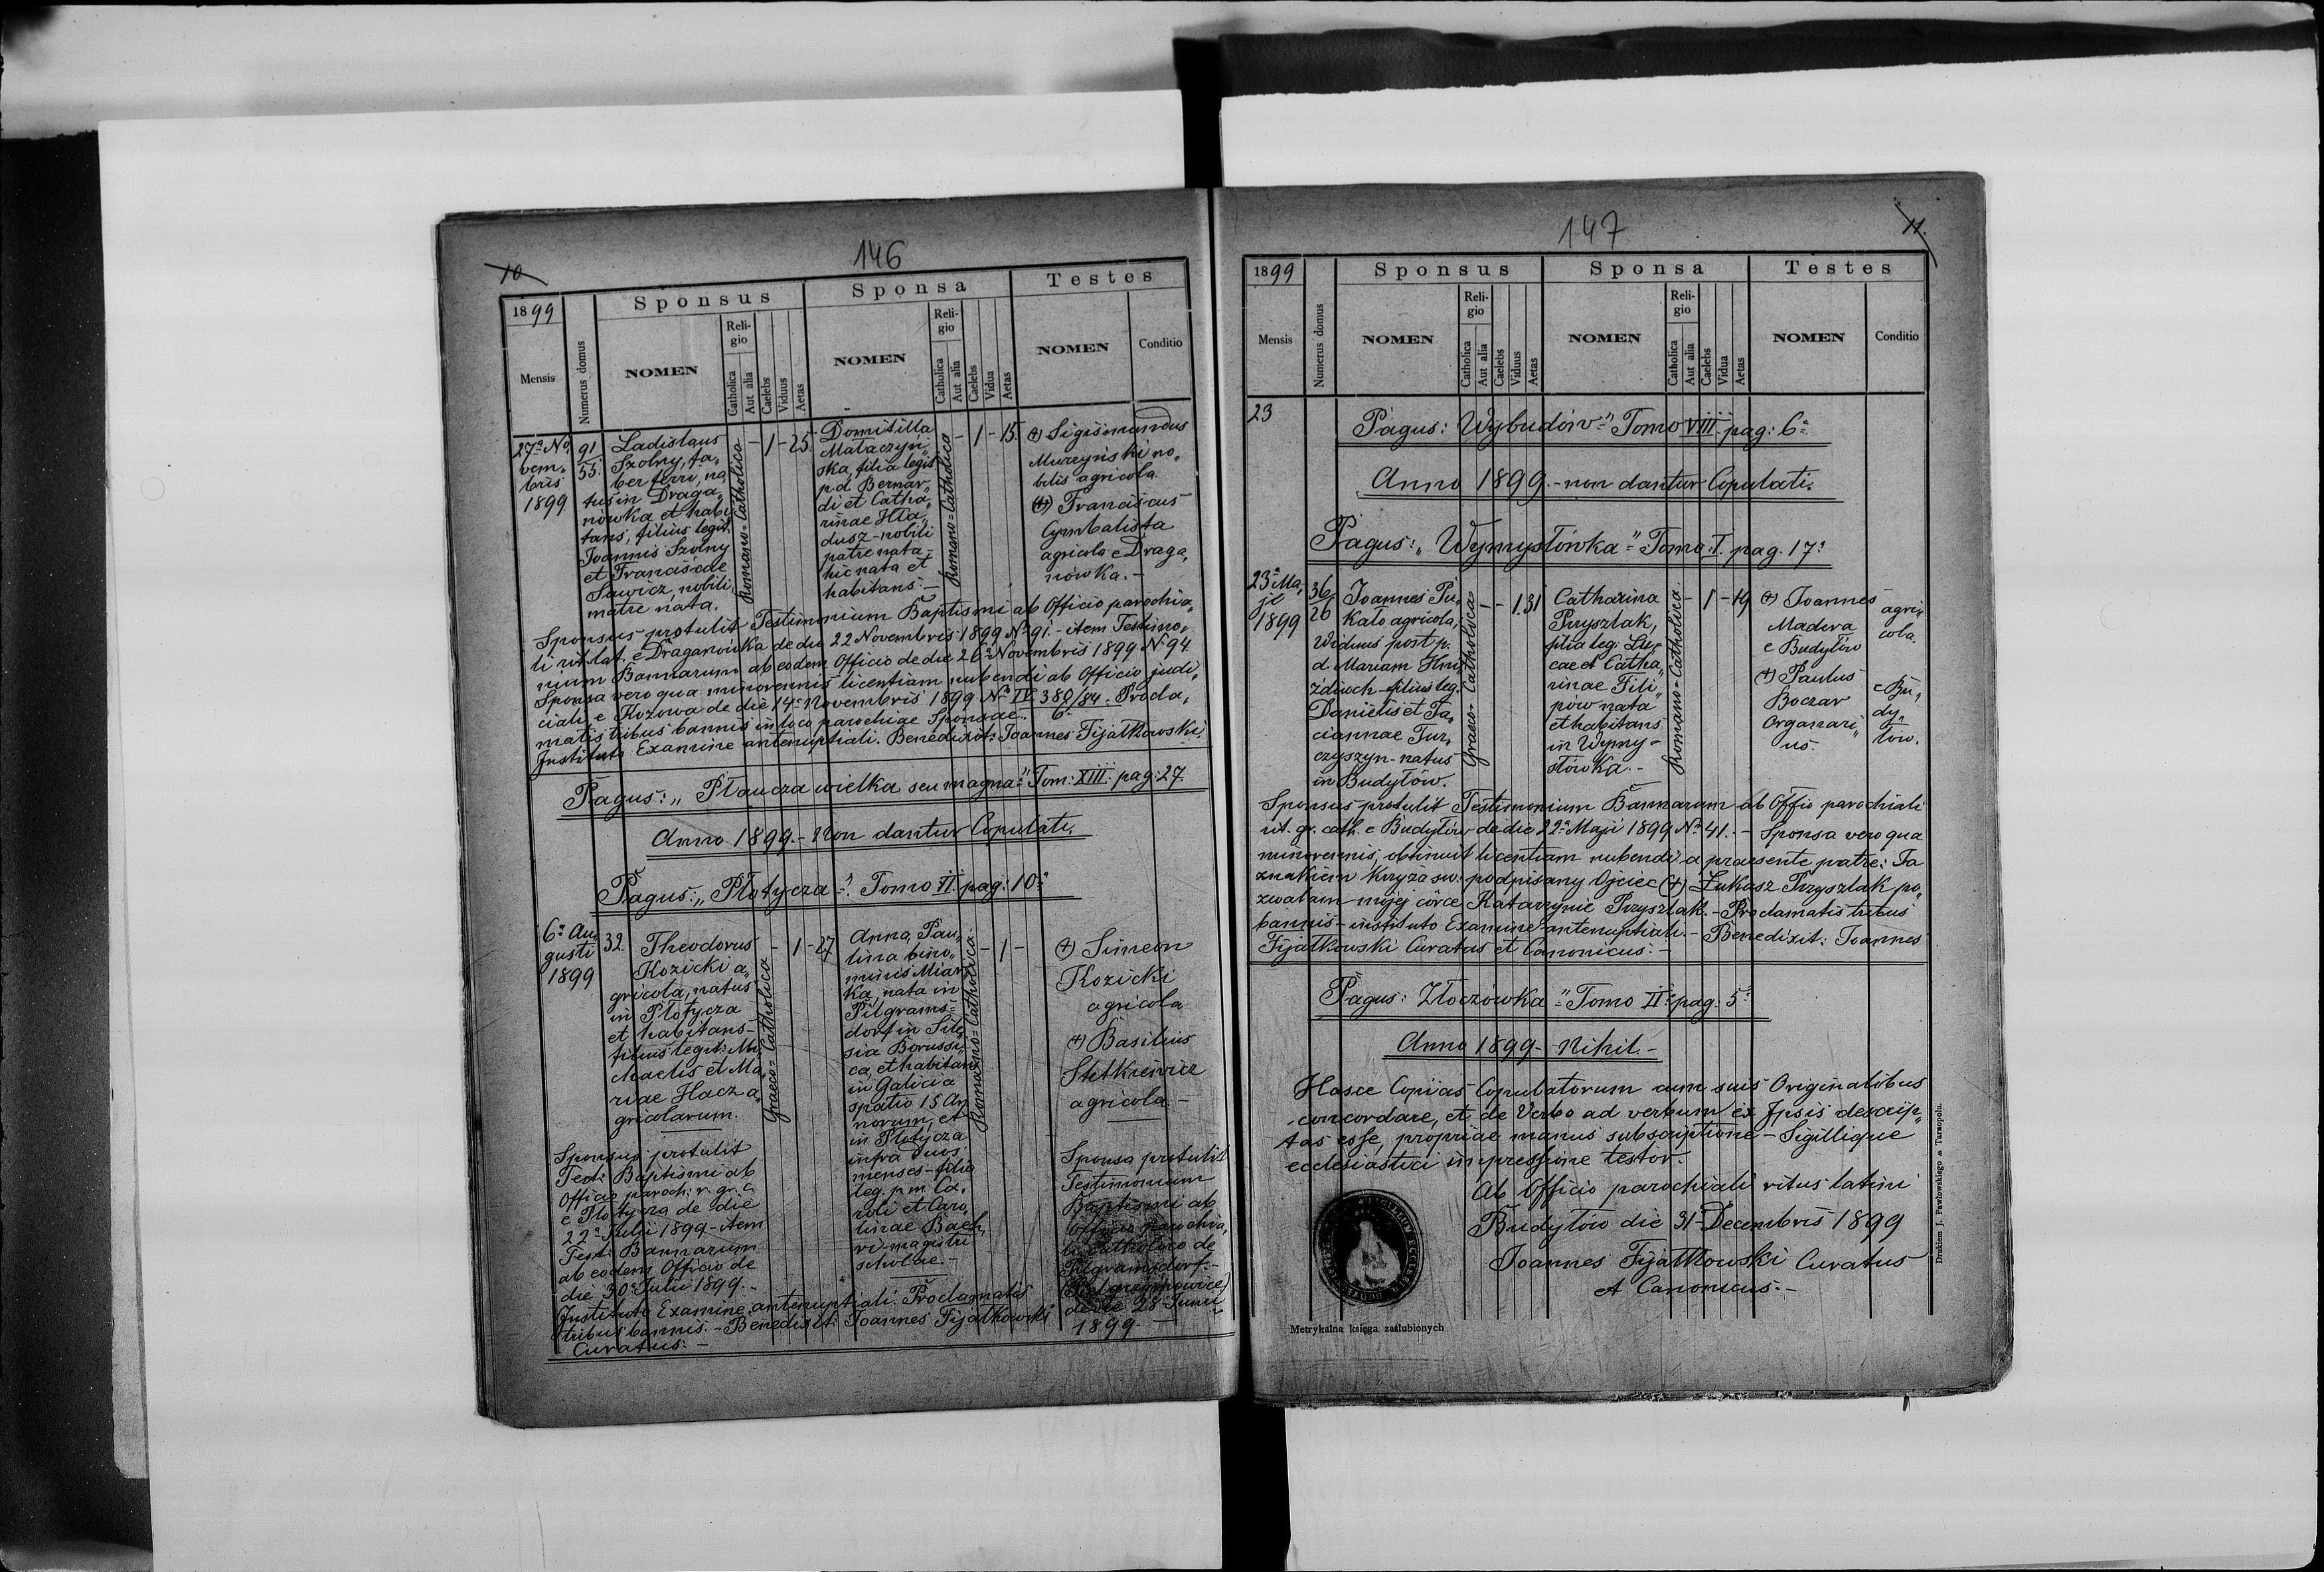 146
10
1899
Sponsus
Sponsa
Testes
Mensis
Numerus domus
NOMEN
Reli-
gio
Catholica
Aut alia
Caelebs
Viduus
Aetas
NOMEN
Reli-
gio
Catholica
Aut alia
Caelebs
Vidua
Aetas
NOMEN
Conditio
27ª No„
vem„
bris
1899
91
55
Ladislaus
Szolny, fa„
ber ferri, na„
tus in Draga„
nówka et habi„
tans, filius legit.
Joannis Szolny
et Francisc de
Sawicz, nobili
matre nata.
Romano=Catholica
- 1 - 25
Domitilla
Mataczyń„
ska, filia legit
pd Bernar„
di et Catha„
rinae Hła„
dusz - nobili
patre nata -
hic nata et
habitans: -
Romano=Catholica
- 1 - 15.
(+) Sigismundus
Murzyński no„
bilis agricola
(+) Franciscus
Cymbalista
agricola e Draga„
nówka. -
Sponsus protulit Testimonium Baptismi ab Officio parochia„
li rit. lat. e Draganówka de die 22 Novembris 1899 Nº 91. - item Testimo„
nium Bannarum ab eodem Officio de die 26ª Novembris 1899 Nº 94.
Sponsa vero qua minorennis licentiam nubendi ab Officio judi„
ciali e Kozowa de die 14ª Novembris 1899 Nº IV 380/84. Procla„
6
matis tribus bannis in loco parochiae Sponsae.
Instituto Examine antenuptiali. Benedixit: Joannes Fijałkowski.
Pagus: „Płaucza wielka seu magna" Tom: XIII. pag: 27.
Anno 1899. - Non dantur Copulati.
Pagus: „Płotycza". Tomo II. pag: 10.ª
6ª Au„
gusti
1899
32
Theodorus
Kozicki a„
gricola, natus
in Płotycza
et habitans -
filius legit: Mi„
chaelis et Ma„
riae Hacz a„
gricolarum.
Graeco=Catholica
- 1 - 27
Anna, Pau„
lina bino„
minis Miar„
ka, nata in
Pilgrams=
dorf in Sile„
sia Borussi„
ca, et habitans
in Galicia
spatio 15 An„
norum, et
in Płotycza
infra duos
menses - filia
leg. p.m. Ca„
roli et Caro„
linae Bach,
vi-magistri
scholae. -
Romano=Catholica
- 1 -
(+) Simeon
Kozicki
agricola
(+) Basilius
Stetkiewicz
agricola -
Sponsus protulit
Test: Baptismi ab
Officio paroch: r. gr. c.
e Płotycza de die
22ª Julii 1899 - item
Test: Bannarum
ab eodem Officio de
die 30ª Julii 1899. -
Sponsa protulit
Testimonium
Baptismi ab
Officio parochia„
li catholico de
Pilgramsdorf. -
(Pielgrzymowice)
de die 28 Junii
1899 -
Instituto Examine antenuptiali. Proclamatis
tribus bannis. - Benedixit: Joannes Fijałkowski
Curatus. -
147
11.
1899
Sponsus
Sponsa
Testes
Mensis
Numerus domus
NOMEN
Reli-
gio
Catholica
Aut alia
Caelebs
Viduus
Aetas
NOMEN
Reli-
gio
Catholica
Aut alia
Caelebs
Vidua
Aetas
NOMEN
Conditio
23
Pagus: Wybudów" Tomo VIII pag: 6ª
Anno 1899. - non dantur Copulati.
Pagus: „Wymysłówka" Tomo I. pag. 17ª
23ª Ma„
ji
1899
36
26
Joannes Pu„
kało agricola,
Viduus post p.
d. Mariam Hni„
zdiuch - filius leg.
Danielis et Ta„
ciannae Tur„
czyszyn - natus
in Budyłów.
Graeco=Catholica
- - 1.31
Catharina
Przyszlak,
filia leg: Lu„
cae et Catha„
rinae Fili„
pów nata
et habitans
in Wymy=
słówka. -
Romano=Catholica
- 1 - 19
(+) Joannes
Madera
e Budyłów
(+) Paulus
Boczar
Organari„
us.
agri„
cola.
e Bu„
dy„
łów.
Sponsus protulit Testimonium Bannarum ab Offio parochiali
rit. gr. cath. e Budyłów de die 22ª Maji 1899 Nº 41. - Sponsa vero qua
minorennis, obtinuit licentiam nubendi a praesente patre: Ja
znakiem krzyża św: podpisany Ojciec (+) Łukasz Przyszlak po„
zwalam mojej córce Katarzynie Przyszlak. - Proclamatis tribus
bannis - instituto Examine antenuptiali. - Benedixit: Joannes
Fijałkowski Curatus et Canonicus. -
Pagus: Złoczówka" Tomo II pag. 5ª
Anno 1899 - Nihil. -
Hasce Copias Copulatorum cum suis Originalibus
concordare, et de Verbo ad verbum ex Ipsis descrip„
tas esse, propriae manus subscriptione - Sigillique
ecclesiastici impressione testor.
Ab Officio parochiali ritus latini
Budyłów die 31 Decembris 1899
Joannes Fijałkowski Curatus
et Canonicus. -
Metrykalna księga zaślubionych
Drukiem J. Pawłowskiego w Tarnopolu.